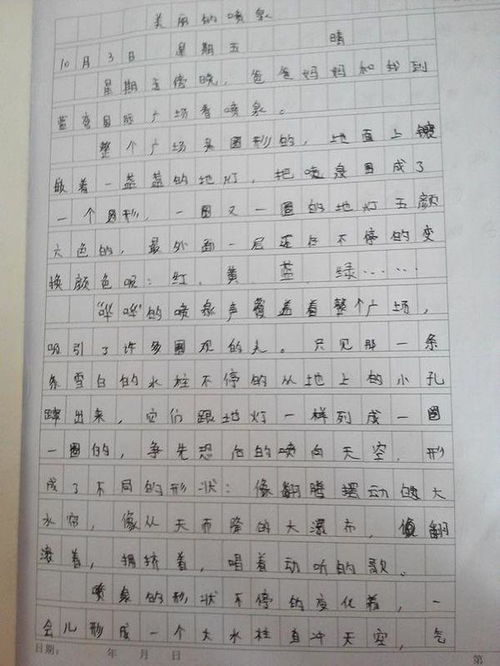 美丽的喷泉
10月3日 星期五 晴
星期五傍晚，爸爸妈妈和我到
蓝湾国际广场看喷泉。
整个广场是圆形的，地面上镶
嵌着一盏盏的地灯，把喷泉围成了
一个圆形，一圈又一圈的地灯五颜
六色的，最外面一层还在不停的变
换颜色呢：红、黄、蓝、绿……
“哗哗”的喷泉声覆盖着整个广场，
吸引了许多围观的人。只见那一条
条雪白的水柱不停的从地上的小孔
蹿出来，它们跟地灯一样列成一圈
一圈的，争先恐后的喷向天空，形
成了不同的形状：像翻腾摆动的大
水帘，像从天而降的大瀑布，翻
滚着，拥挤着，唱着动听的歌。
喷泉的形状不停的变化着，一
会儿形成一个大水柱直冲天空，气
日期： 年 月 日 第